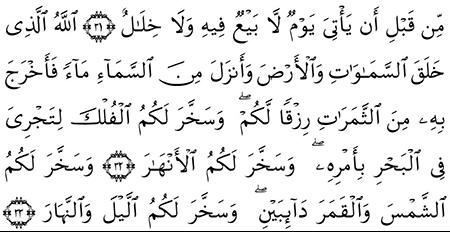 مِّن قَبْلِ أَن يَأْتِىَ يَوْمٌ لَّا بَيْعٌ فِيهِ وَلَا خِلَـٰلٌ ﴿٣١﴾ ٱللَّهُ ٱلَّذِى
خَلَقَ ٱلسَّمَـٰوَٰتِ وَٱلْأَرْضَ وَأَنزَلَ مِنَ ٱلسَّمَآءِ مَآءً فَأَخْرَجَ
بِهِۦ مِنَ ٱلثَّمَرَٰتِ رِزْقًا لَّكُمْ ۖ وَسَخَّرَ لَكُمُ ٱلْفُلْكَ لِتَجْرِىَ
فِى ٱلْبَحْرِ بِأَمْرِهِۦ ۖ وَسَخَّرَ لَكُمُ ٱلْأَنْهَـٰرَ ﴿٣٢﴾ وَسَخَّرَ لَكُمُ
ٱلشَّمْسَ وَٱلْقَمَرَ دَآئِبَيْنِ ۖ وَسَخَّرَ لَكُمُ ٱلَّيْلَ وَٱلنَّهَارَ ﴿٣٣﴾